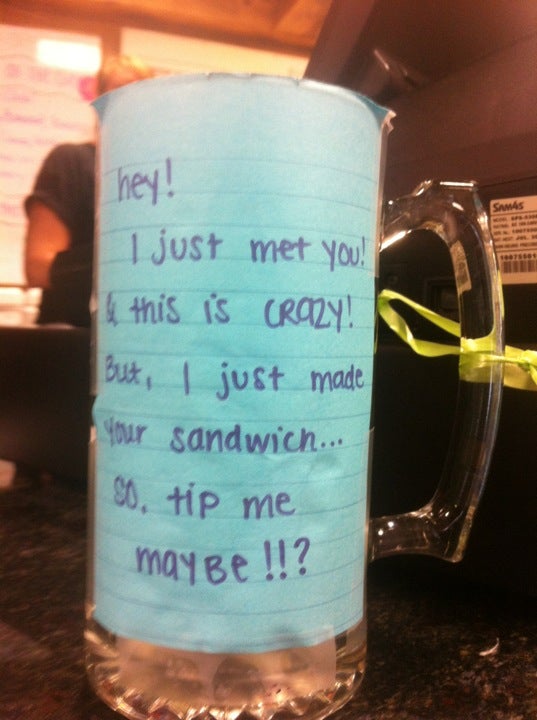 hey!
I just met you!
& this is CRAZY!
But, I just made
your sandwich...
So, tip me
maybe!!?
SAM4S